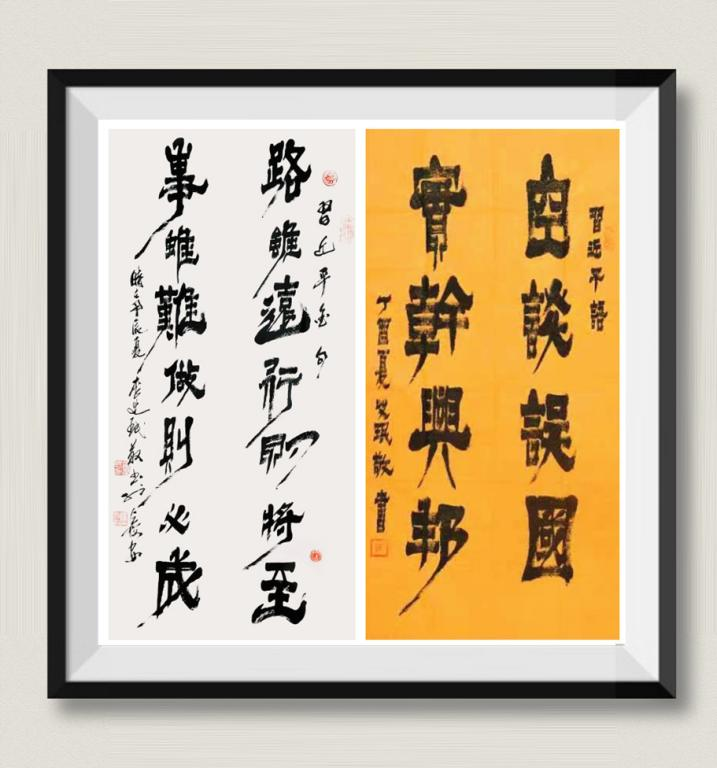 習近平語
空談誤國
實幹興邦
丁酉夏 珉敬書
習近平金句
路雖遠行則將至
事雖難做則必成
辰夏 敬書